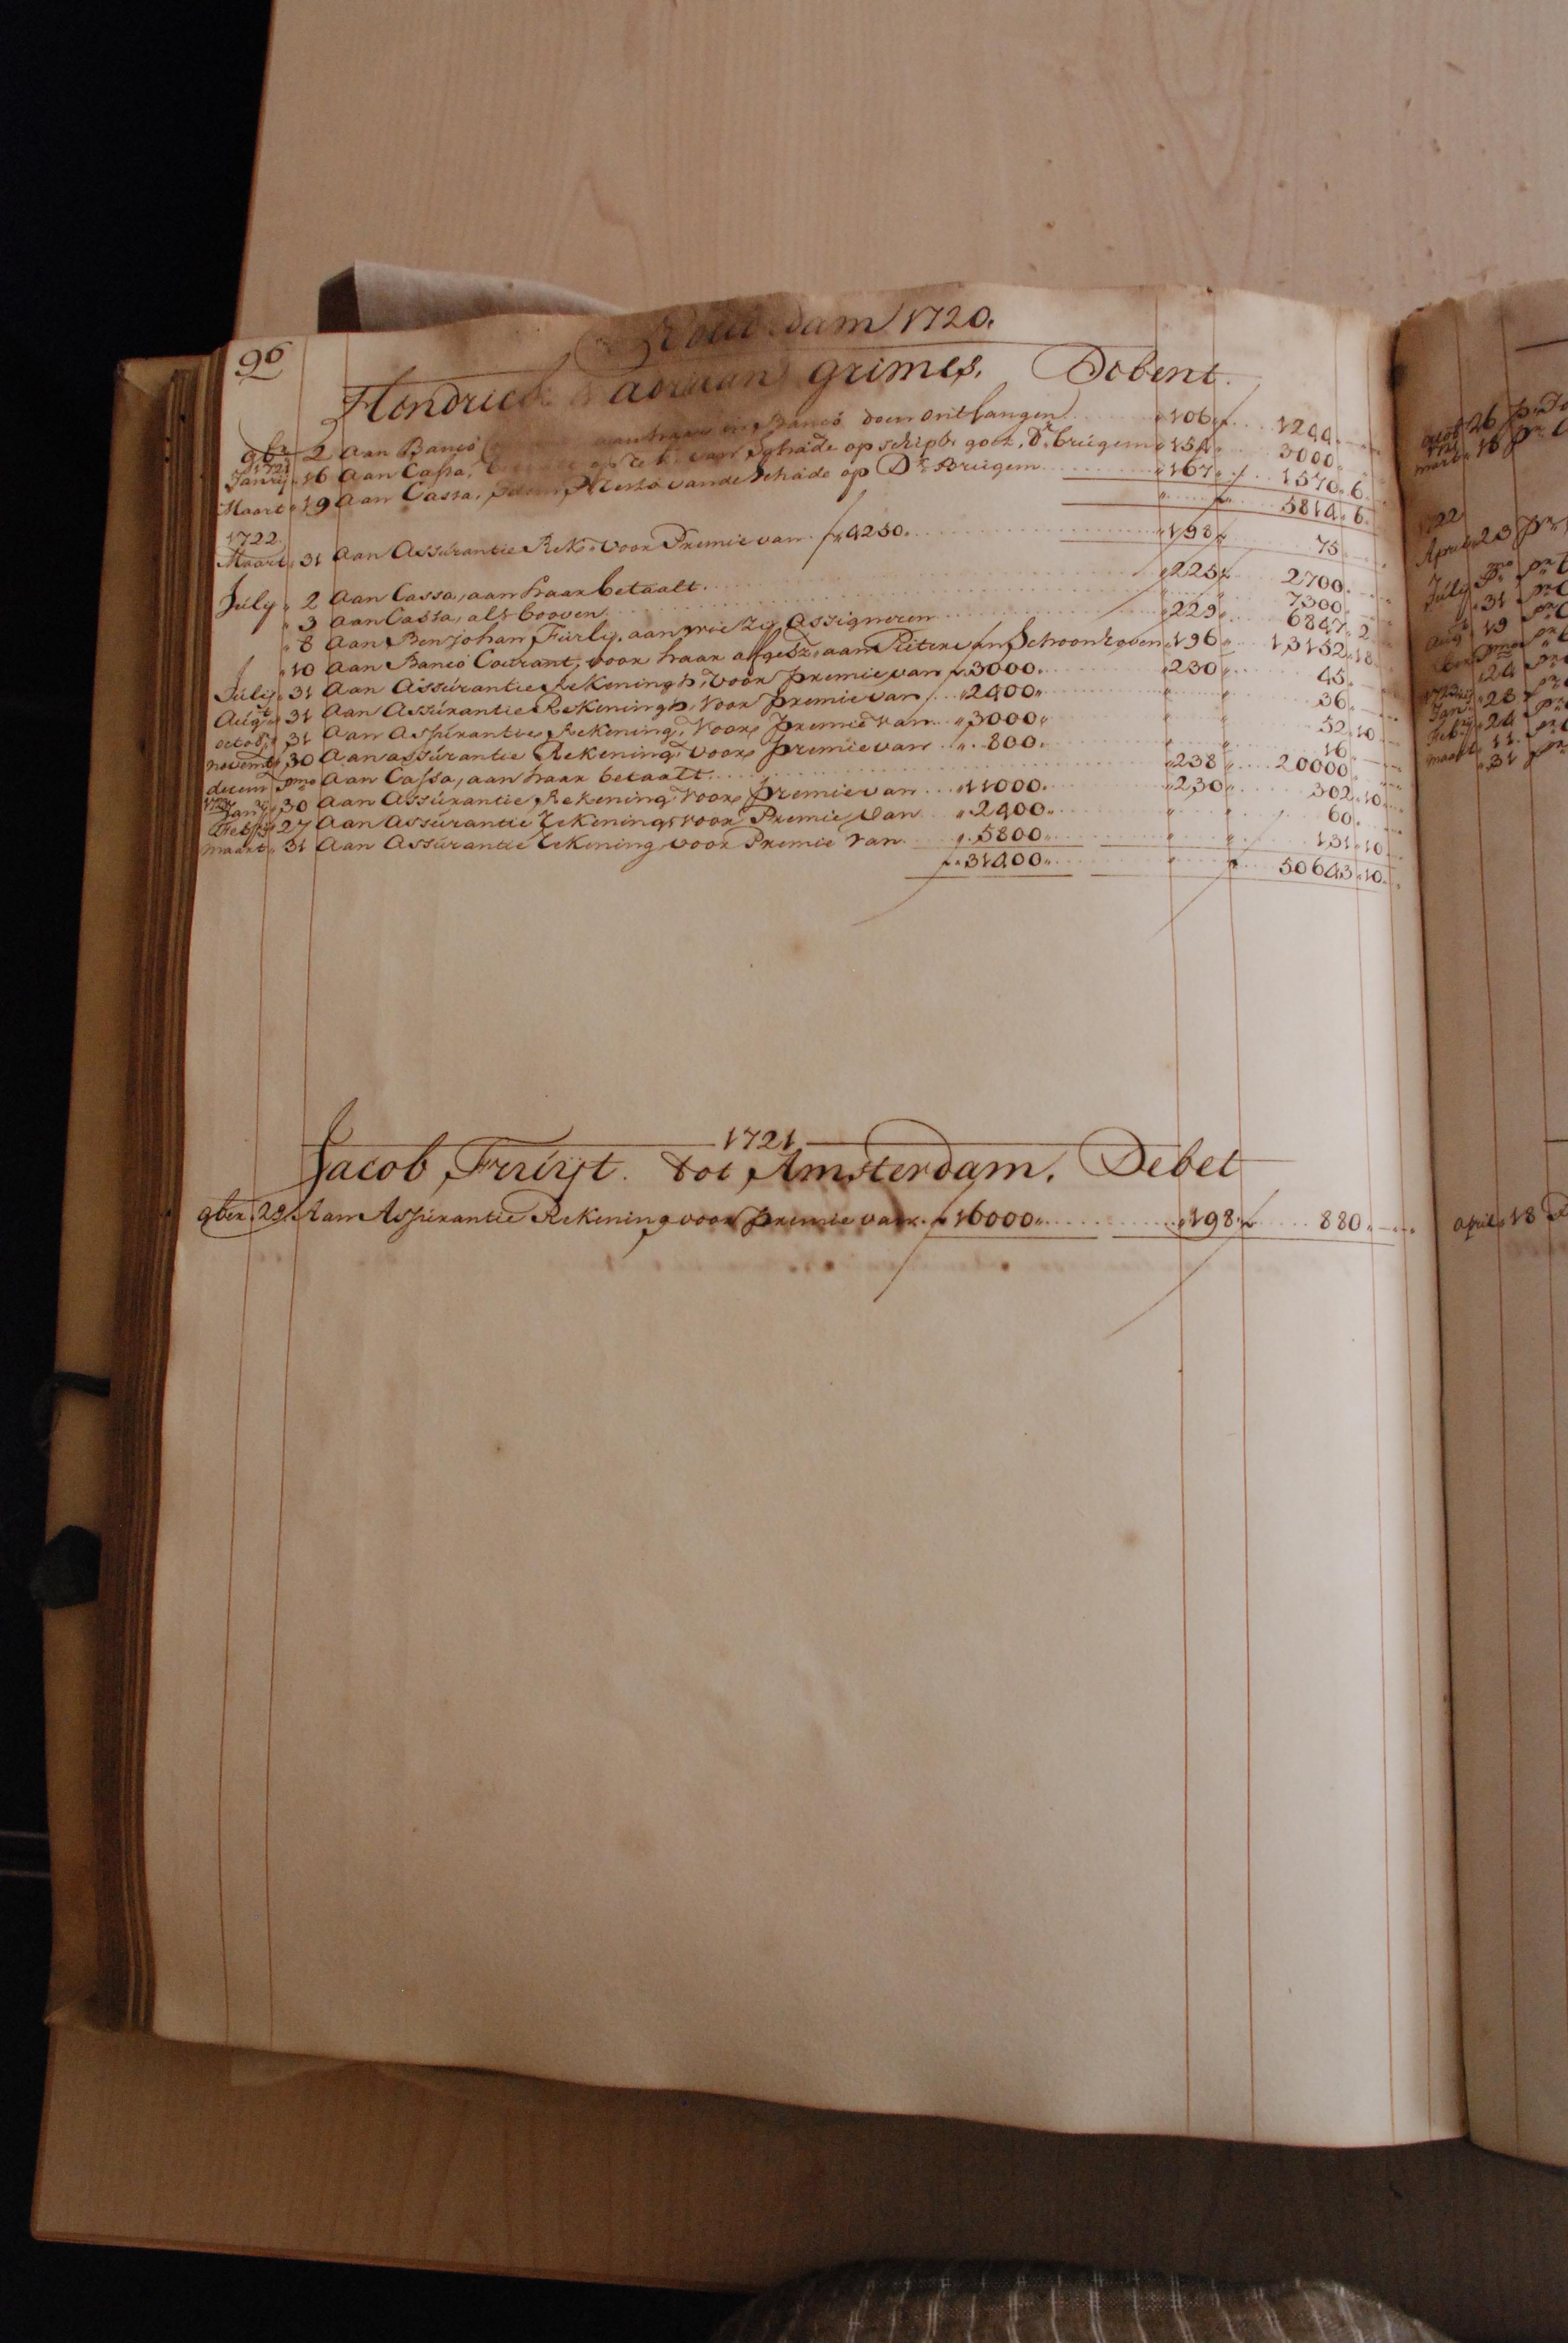 96
Rotterdam 1720.
Hendrick & adriaan grimes. Debent.
9br 2 Aan Banco in Banco doen ontfangen 106 f 1244
1721
Janry 16 Aan Cassa, op rek van Schade op schip & goet, Dr. brugem 154 3000
Maart 19 Aan Cassa, vande Schade op Dr Brugem 167 f 1570 6
5814 6
1722
Maart 31 Aan Assurantie Reke voor Premie van f 4250. 198 f 75
July 2 Aan Cassa, aan haar betaalt 225 f 2700
3 Aan Cassa, als booven 7300
8 Aan Benjohan Furly, aan wie zy assigneren 229 6847 2
10 Aan Banco Courant, voor haar afgesz. aan Pieter van Schoonhoven 196 13152 18
July 31 Aan Assurantie Rekeningh, voor premie van f 3000. 230 45
Augt 31 Aan Assurantie Rekeningh, voor premie van 2400 36
octob 31 Aan Assurantie Rekening, voor premie van 3000 52 10
novemb 30 Aan assurantie Rekening, voor premie van 800. 16
decem pmo Aan Cassa, aan haar betaalt 238 20000
1723 Jany 30 Aan Assurantie Rekening voor premie van 11000. 230 302 10
Feb 27 Aan Assurantie Rekening voor Premie van 2400 60
maart 31 Aan Assurantie Rekening voor Premie van 5800 131 10
f 31400 f 50643 10
1721
Jacob Fruijt. tot Amsterdam. Debet
9ber 29 Aan Assurantie Rekening voor premie van f 16000 198 f 880
april 18